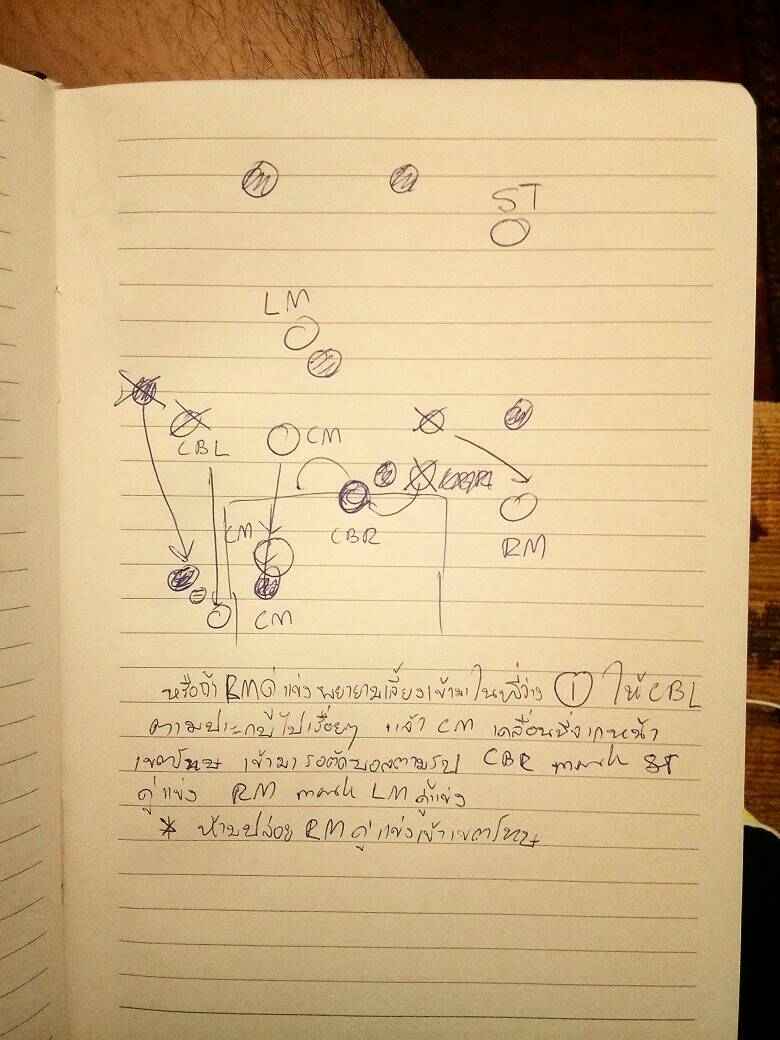 ST
LM
CBL
CM
CM
CBR
RM
CM
หรือถ้า RM คู่แข่งพยายามเลี้ยงเข้ามาในที่ว่าง ① ให้ CBL
ตามประกบไปเรื่อยๆ แล้ว CM เคลื่อนที่จากหน้า
เขตโทษ เข้ามารอตัดบอลตามรูป CBR mark ST
คู่แข่ง RM mark LM คู่แข่ง
* ห้ามปล่อย RM คู่แข่งเข้าเขตโทษ